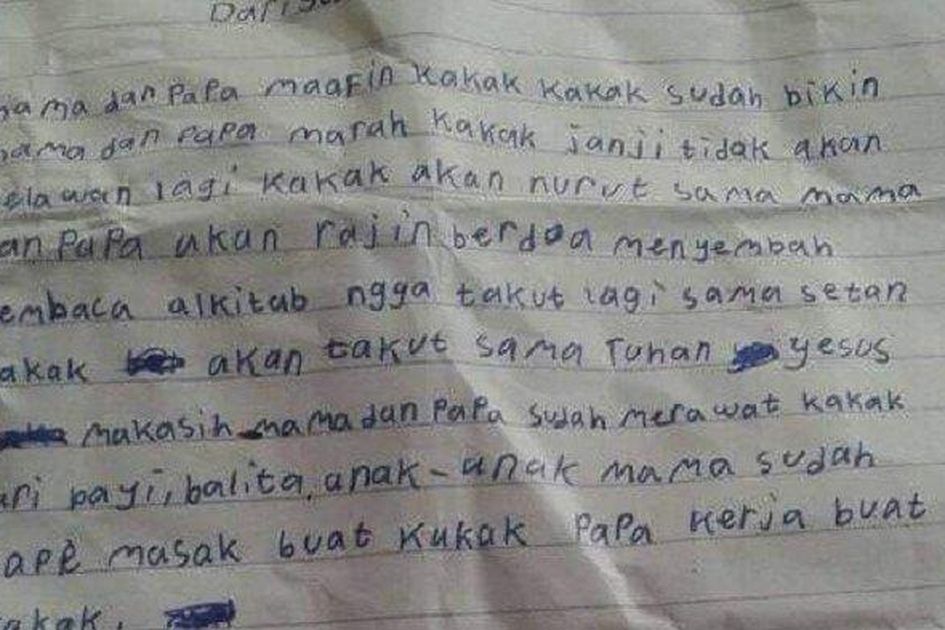 Dari
mama dan PaPa maaFin Kakak Kakak sudah bikin
mama dan PaPa marah Kakak janji tidak akan
elawan lagi Kakak akan nurut sama mama
an PaPa akan rajin berdoa menyembah
embaca alkitab ngga takut lagi sama setan
akak akan takut sama Tuhan yesus
makasih mama dan PaPa sudah merawat kakak
ari bayi, balita, anak-anak mama sudah
aPE masak buat Kakak PaPa Kerja buat
akak.